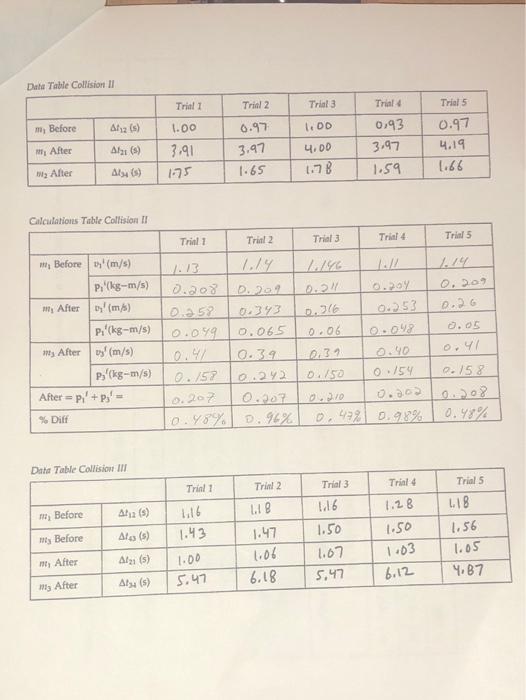 Data Table Collision II
Trial 1 Trial 2 Trial 3 Trial 4 Trial 5
m₁ Before Δt₁₂ (s) 1.00 0.97 1.00 0.93 0.97
m₁ After Δt₂₁ (s) 3.91 3.97 4.00 3.97 4.19
m₂ After Δt₃₄ (s) 1.75 1.65 1.78 1.59 1.66
Calculations Table Collision II
Trial 1 Trial 2 Trial 3 Trial 4 Trial 5
m₁ Before v₁' (m/s) 1.13 1.14 1.146 1.11 1.14
p₁'(kg-m/s) 0.208 0.209 0.211 0.204 0.209
m₁ After v₁' (m/s) 0.258 0.343 0.316 0.253 0.26
p₁'(kg-m/s) 0.049 0.065 0.06 0.048 0.05
m₃ After v₃' (m/s) 0.41 0.39 0.39 0.40 0.41
p₃'(kg-m/s) 0.158 0.242 0.150 0.154 0.158
After = p₁' + p₃' = 0.207 0.207 0.210 0.202 0.208
% Diff 0.48% 0.96% 0.47% 0.98% 0.48%
Data Table Collision III
Trial 1 Trial 2 Trial 3 Trial 4 Trial 5
m₁ Before Δt₁₂ (s) 1.16 1.18 1.16 1.28 1.18
m₃ Before Δt₄₃ (s) 1.43 1.47 1.50 1.50 1.56
m₁ After Δt₂₁ (s) 1.00 1.06 1.07 1.03 1.05
m₃ After Δt₃₄ (s) 5.47 6.18 5.47 6.12 4.87